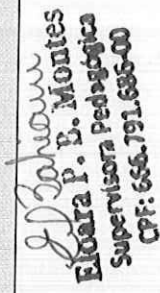 Eloara P. E. Montes
Supervisora Pedagógica
CPF: 656.791.686-00